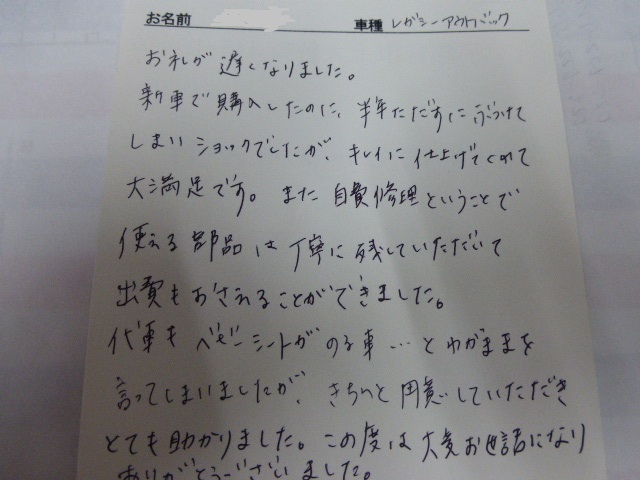 お名前 車種 レガシーアウトバック
お礼が遅くなりました。
新車で購入したのに、半年たたずにぶつけて
しまいショックでしたが、キレイに仕上げてくれて
大満足です。また自費修理ということで
使える部品は丁寧に残していただいて
出費もおさえることができました。
代車もベビーシートがのる車…とわがままを
言ってしまいましたが、きちんと用意していただき
とても助かりました。この度は大変お世話になり
ありがとうございました。